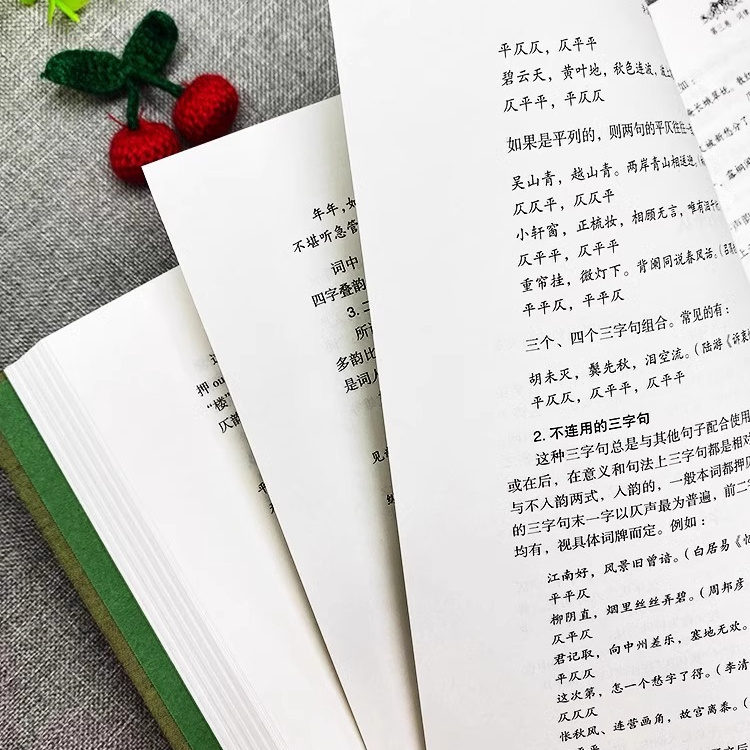 平仄仄，仄平平
碧云天，黄叶地，秋色连波，波上
仄平平，平仄仄
如果是平列的，则两句的平仄往往一
吴山青，越山青。两岸青山相送迎，
仄仄平，仄仄平
小轩窗，正梳妆，相顾无言，唯有泪千行
仄平平，仄平平
重帘挂，微灯下。背阑同说春风话。
平平仄，平平仄
三个、四个三字句组合。常见的有：
胡未灭，鬓先秋，泪空流。（陆游《诉衷
平仄仄，仄平平，仄平平
2. 不连用的三字句
这种三字句总是与其他句子配合使用
或在后，在意义和句法上三字句都是相对
与不入韵两式，入韵的，一般本词都押仄
的三字句末一字以仄声最为普遍，前二字
均有，视具体词牌而定。例如：
江南好，风景旧曾谙。（白居易《忆
平平仄
柳阴直，烟里丝丝弄碧。（周邦彦
仄平仄
君记取，向中州差乐，塞地无欢。
平仄仄
这次第，怎一个愁字了得。（李清
仄仄仄
怅秋风、连营画角，故宫离黍。（
年年，如
不堪听急管
词中
四字叠韵
3. 二
所
多韵比
是词人
见
平
押 ou
“楼”
仄韵